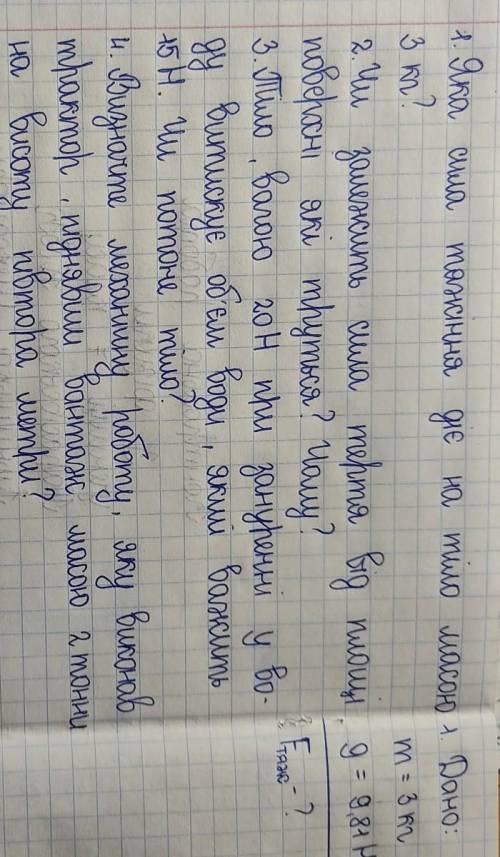 1. Яка сила тяжіння діє на тіло масою
3 кг?
2. Чи залежить сила тертя від площі
поверхні які труться? Чому?
3. Тіло, вагою 20Н при зануренні у во-
ду витискує об'єм води, який важить
15 Н. Чи потоне тіло?
4. Визначте механічну роботу, яку виконав
трактор, піднявши вантаж масою 2 тонни
на висоту півтора метри?
1. Дано:
m = 3 кг
g = 9,81 Н
Fтяж - ?